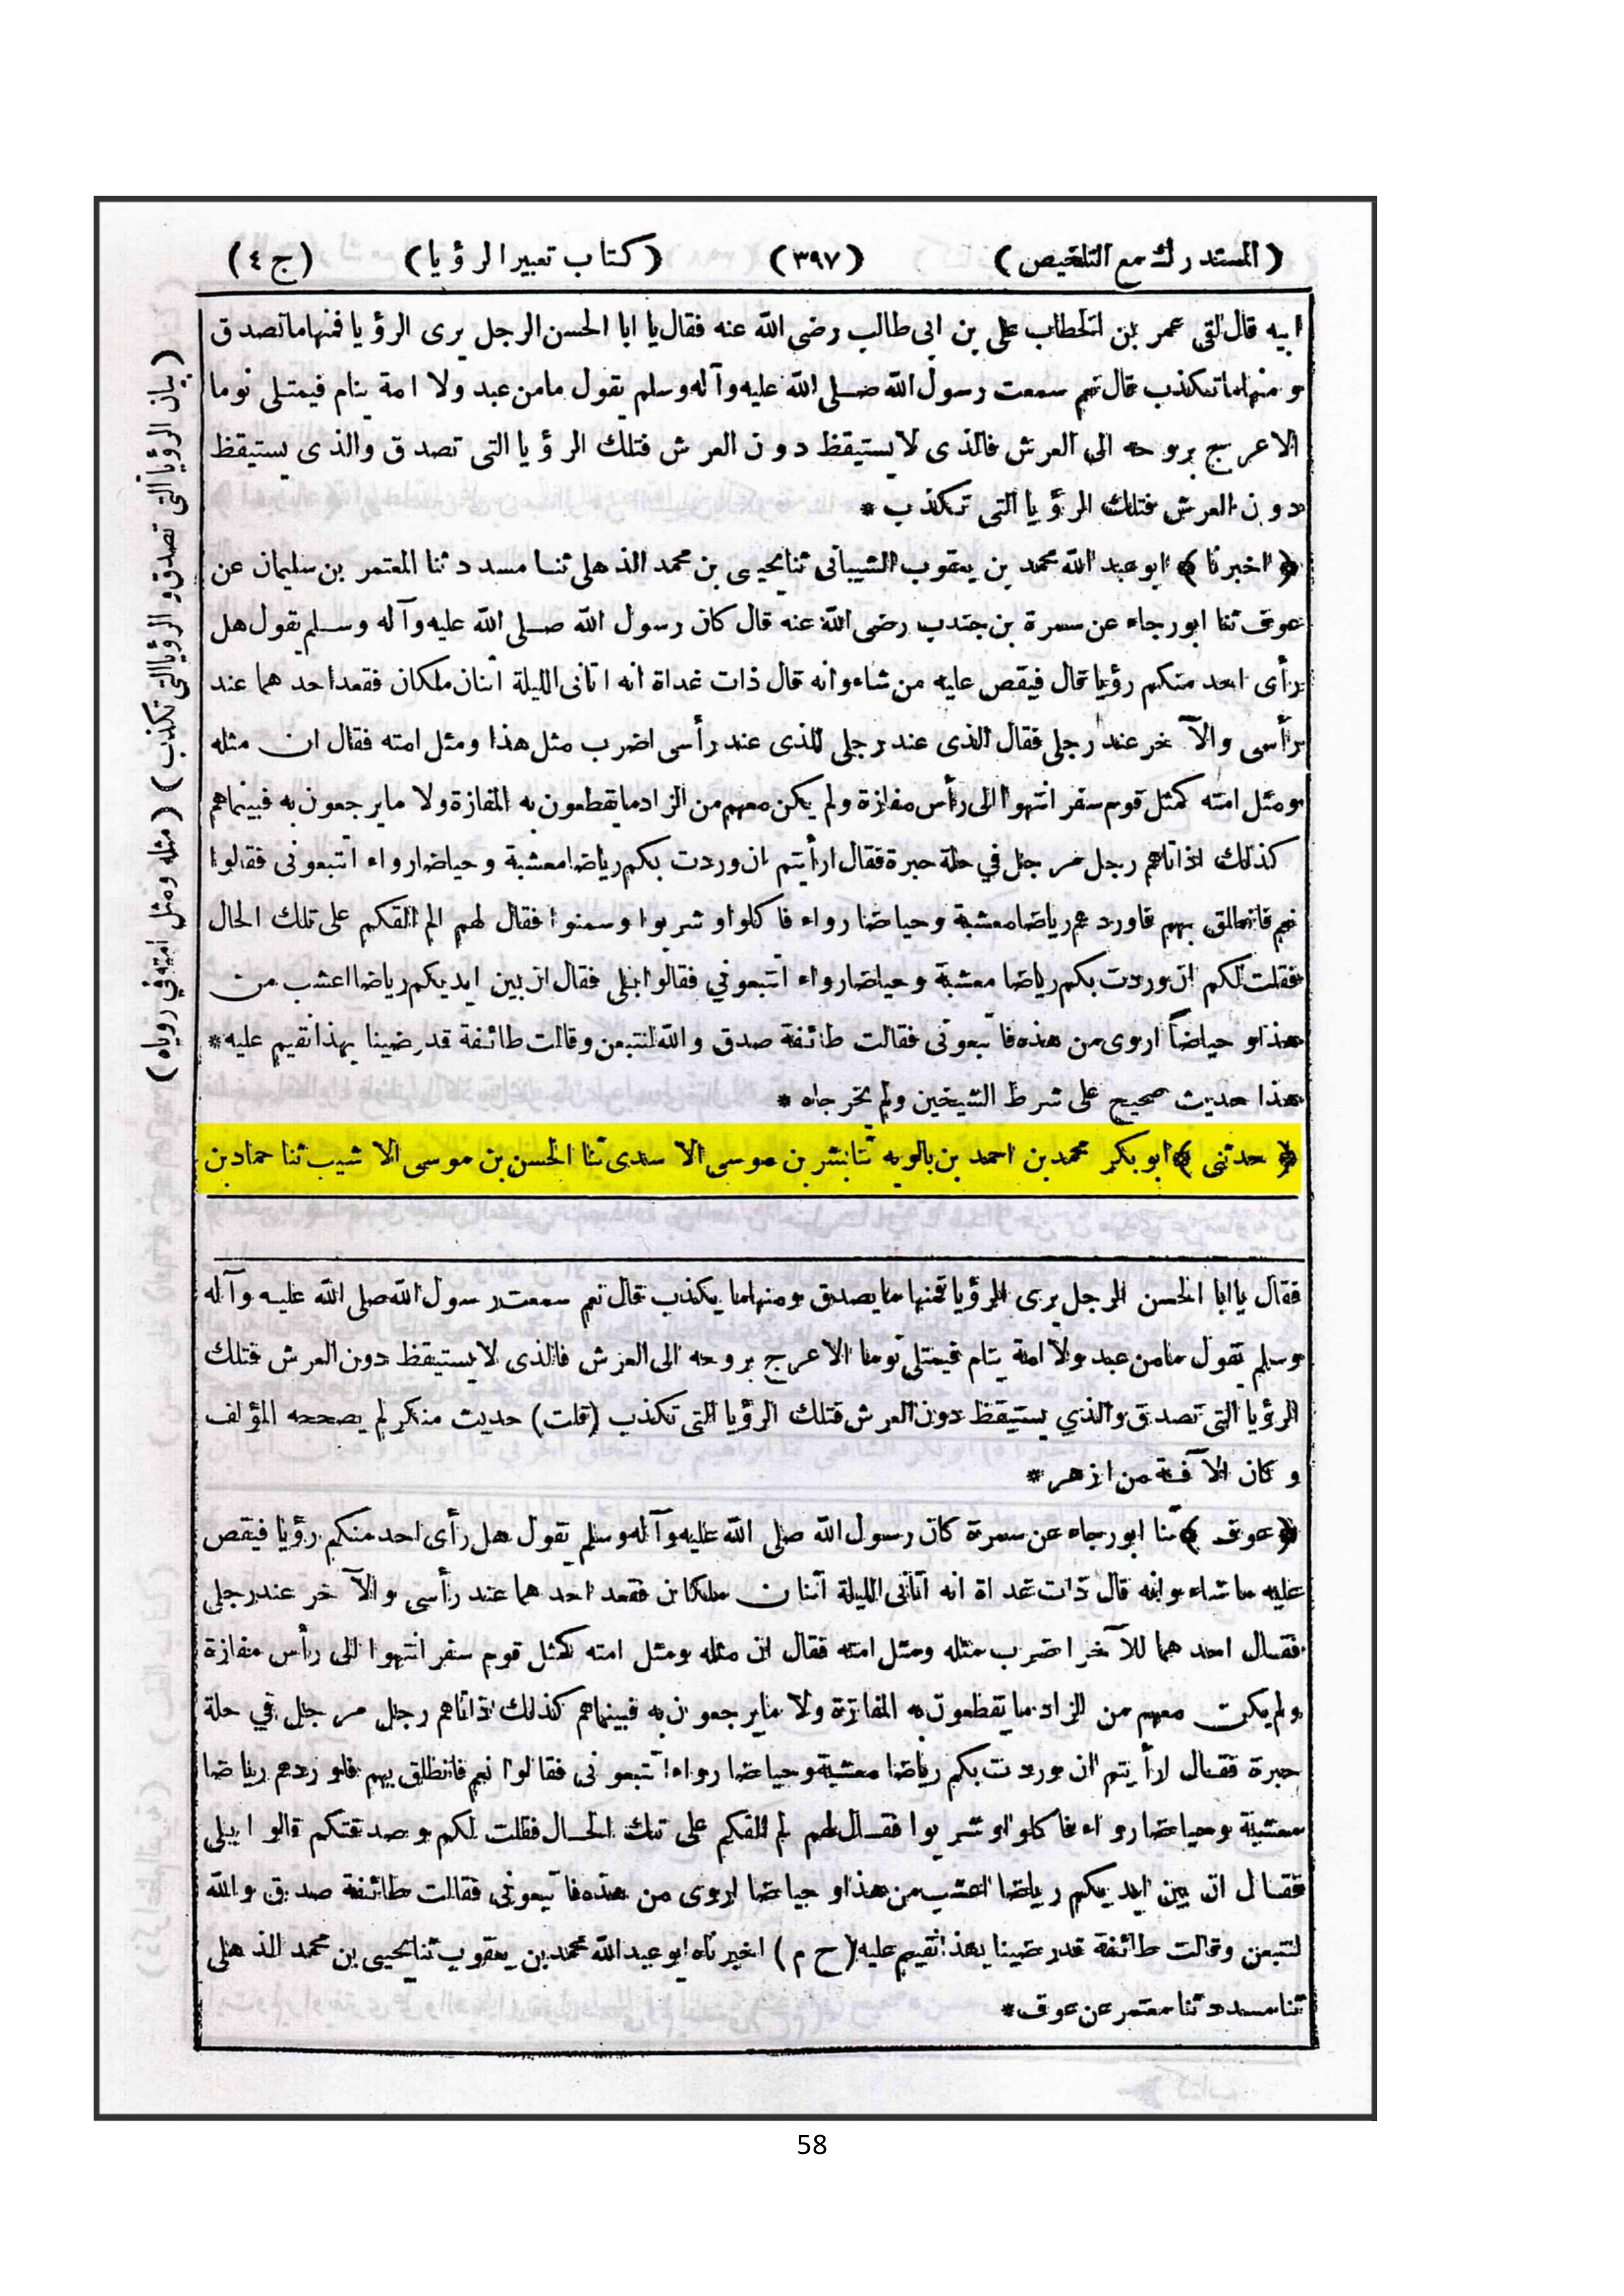 (المستدرك مع التلخيص) (٣٩٧) (كتاب تعبير الرؤيا) (ج ٤)
ابيه قال لقى عمر بن الخطاب على بن ابى طالب رضى الله عنه فقال يا ابا الحسن الرجل يرى الرؤيا فمنها ما تصدق
ومنها ما تكذب قال نعم سمعت رسول الله صلى الله عليه وآله وسلم يقول ما من عبد ولا امة ينام فيمتلى نوما
الا عرج بروحه الى العرش فالذى لا يستيقظ دون العرش فتلك الرؤيا التى تصدق والذى يستيقظ
دون العرش فتلك الرؤيا التى تكذب *
﴿ اخبرنا ﴾ ابو عبد الله محمد بن يعقوب الشيبانى ثنا يحيى بن محمد الذهلى ثنا مسدد ثنا المعتمر بن سليمان عن
عوف ثنا ابو رجاء عن سمرة بن جندب رضى الله عنه قال كان رسول الله صلى الله عليه وآله وسلم يقول هل
رأى احد منكم رؤيا قال فيقص عليه من شاء وانه قال ذات غداة انه اتانى الليلة اثنان ملكان فقعد احدهما عند
رأسى والآخر عند رجلى فقال الذى عند رجلى للذى عند رأسى اضرب مثل هذا ومثل امته فقال ان مثله
ومثل امته كمثل قوم سفر انتهوا الى رأس مفازة ولم يكن معهم من الزاد ما يقطعون به المفازة ولا ما يرجعون به فبينما هم
كذلك اذ اتاهم رجل مرجل في حلة حبرة فقال ارأيتم ان وردت بكم رياضا معشبة وحياضا رواء اتتبعونى فقالوا
نعم فانطلق بهم فاوردهم رياضا معشبة وحياضا رواء فاكلوا وشربوا وسمنوا فقال لهم الم القكم على تلك الحال
فقلت لكم ان وردت بكم رياضا معشبة وحياضا رواء اتتبعوني فقالوا بلى فقال ان بين ايديكم رياضا اعشب من
هذا وحياضاً اروى من هذه فاتبعونى فقالت طائفة صدق والله لنتبعن وقالت طائفة قد رضينا بهذا نقيم عليه *
هذا حديث صحيح على شرط الشيخين ولم يخرجاه *
﴿ حدثنى ﴾ ابو بكر محمد بن احمد بن بالويه ثنا بشر بن موسى الاسدى ثنا الحسن بن موسى الاشيب ثنا حماد بن
(بيان الرؤيا التى تصدق و الرؤيا التى تكذب) (مثله ومثل امته في روياه)
فقال يا ابا الحسن الرجل يرى الرؤيا فمنها ما يصدق ومنها ما يكذب قال نعم سمعت رسول الله صلى الله عليه وآله
وسلم يقول ما من عبد ولا امة ينام فيمتلى نوما الا عرج بروحه الى العرش فالذى لا يستيقظ دون العرش فتلك
الرؤيا التى تصدق والذي يستيقظ دون العرش فتلك الرؤيا التى تكذب (قلت) حديث منكر لم يصححه المؤلف
و كان الآفة من ازهر *
﴿ عوف ﴾ ثنا ابو رجاء عن سمرة كان رسول الله صلى الله عليه وآله وسلم يقول هل رأى احد منكم رؤيا فيقص
عليه ما شاء وانه قال ذات غداة انه اتانى الليلة اثنان ملكان فقعد احدهما عند رأسى والآخر عند رجلى
فقال احدهما للآخر اضرب مثله ومثل امته فقال ان مثله ومثل امته كمثل قوم سفر انتهوا الى رأس مفازة
ولم يكن معهم من الزاد ما يقطعون به المفازة ولا ما يرجعون به فبينما هم كذلك اذ اتاهم رجل مرجل في حلة
حبرة فقال ارأيتم ان وردت بكم رياضا معشبة وحياضا رواء اتتبعونى فقالوا نعم فانطلق بهم فاوردهم رياضا
معشبة وحياضا رواء فاكلوا وشربوا فقال لهم الم القكم على تلك الحال فقلت لكم وصدقتكم قالوا بلى
فقال ان بين ايديكم رياضا اعشب من هذا وحياضا اروى من هذه فاتبعونى فقالت طائفة صدق والله
لنتبعن وقالت طائفة قد رضينا بهذا نقيم عليه (خ م) اخبرناه ابو عبد الله محمد بن يعقوب ثنا يحيى بن محمد الذهلى
ثنا مسدد ثنا معتمر عن عوف *
58